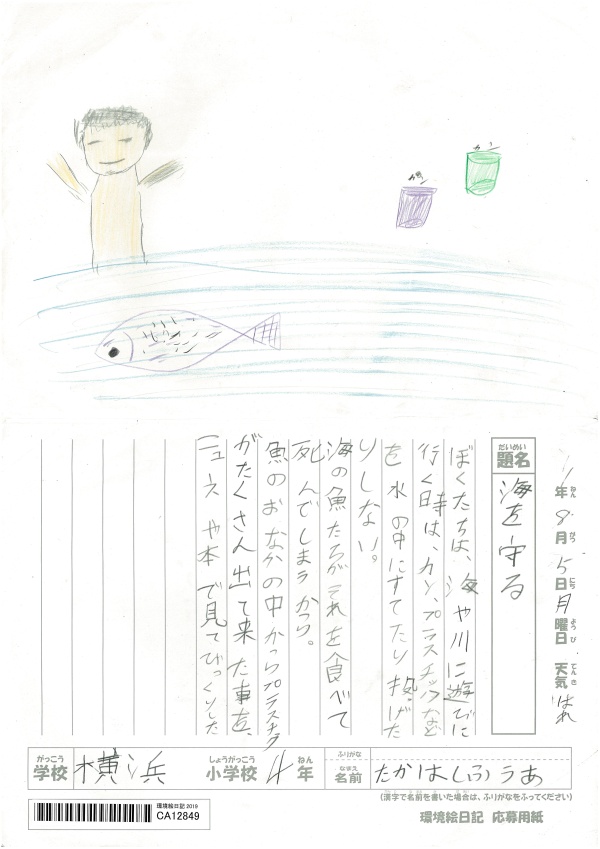 11年8月5日月曜日 天気はれ
ねん がつ にち ようび てんき
だいめい
題名 海を守る
ぼくたちは、海や川に遊びに
行く時は、カン、プラスチックなど
を水の中にすてたり投げた
りしない。
海の魚たちがそれを食べて
死んでしまうから。
魚のおなかの中からプラスチック
がたくさん出て来た事を、
ニュースや本で見てびっくりした
がっこう
学校 横浜
しょうがっこう ねん
小学校 4年
ふりがな
なまえ
名前 たかはしふうあ
(漢字で名前を書いた場合は、ふりがなをふってください)
環境絵日記 2019
CA12849
環境絵日記 応募用紙